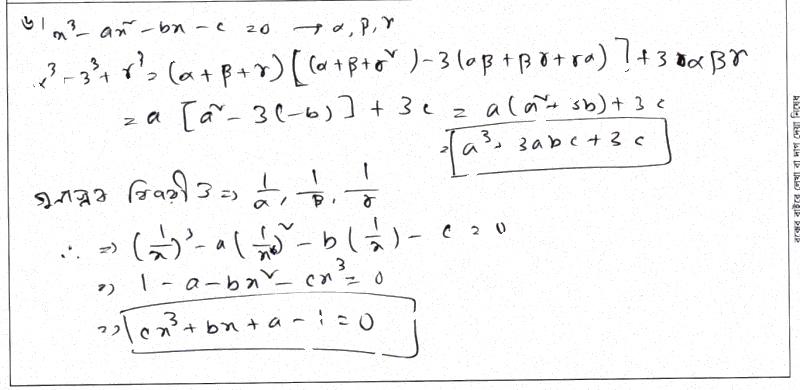 ৬। x³ - ax² - bx - c = 0 → α, β, γ
α³ - β³ + γ³ = (α + β + γ) [(α + β + γ²) - 3(αβ + βγ + γα)] + 3αβγ
= a [a² - 3(-b)] + 3c = a(a² + 3b) + 3c
= a³ + 3abc + 3c
মূলগুলোর বিপরীত ⇒ 1/α, 1/β, 1/γ
∴ ⇒ (1/x)³ - a(1/x)² - b(1/x) - c = 0
⇒ 1 - a - bx² - cx³ = 0
⇒ cx³ + bx + a - 1 = 0